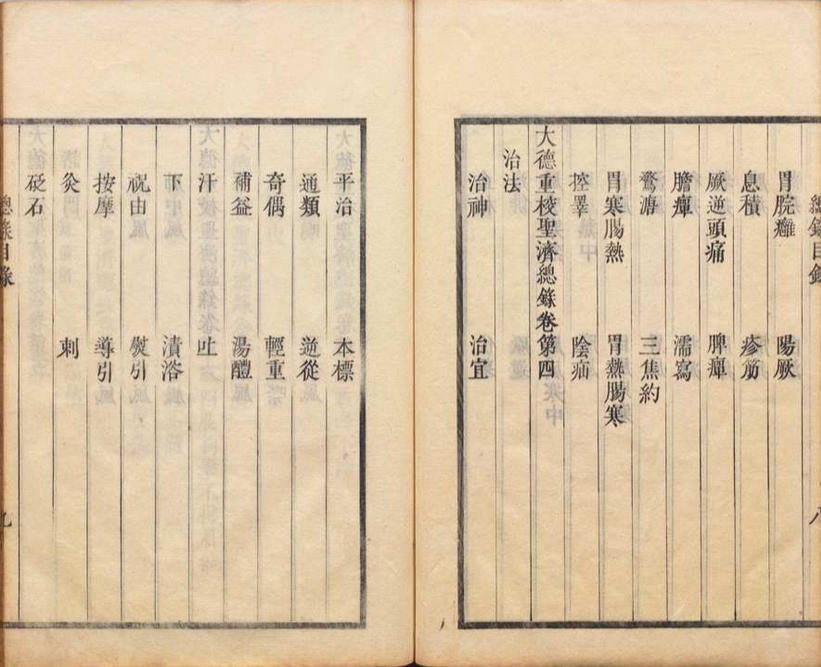 總錄目錄 八
胃脘癰 陽厥
息積 疹筋
厥逆頭痛 脾癉
膽癉 濡寫
鶩溏 三焦約
胃寒腸熱 胃熱腸寒
控睪 陰疝
大德重校聖濟總錄卷第四
治法
治神 治宜
平治 本標
通類 逆從
奇偶 輕重
補益 湯醴
汗 吐
下 漬浴
祝由 熨引
按摩 導引
灸 刺
砭石
總錄目錄 九